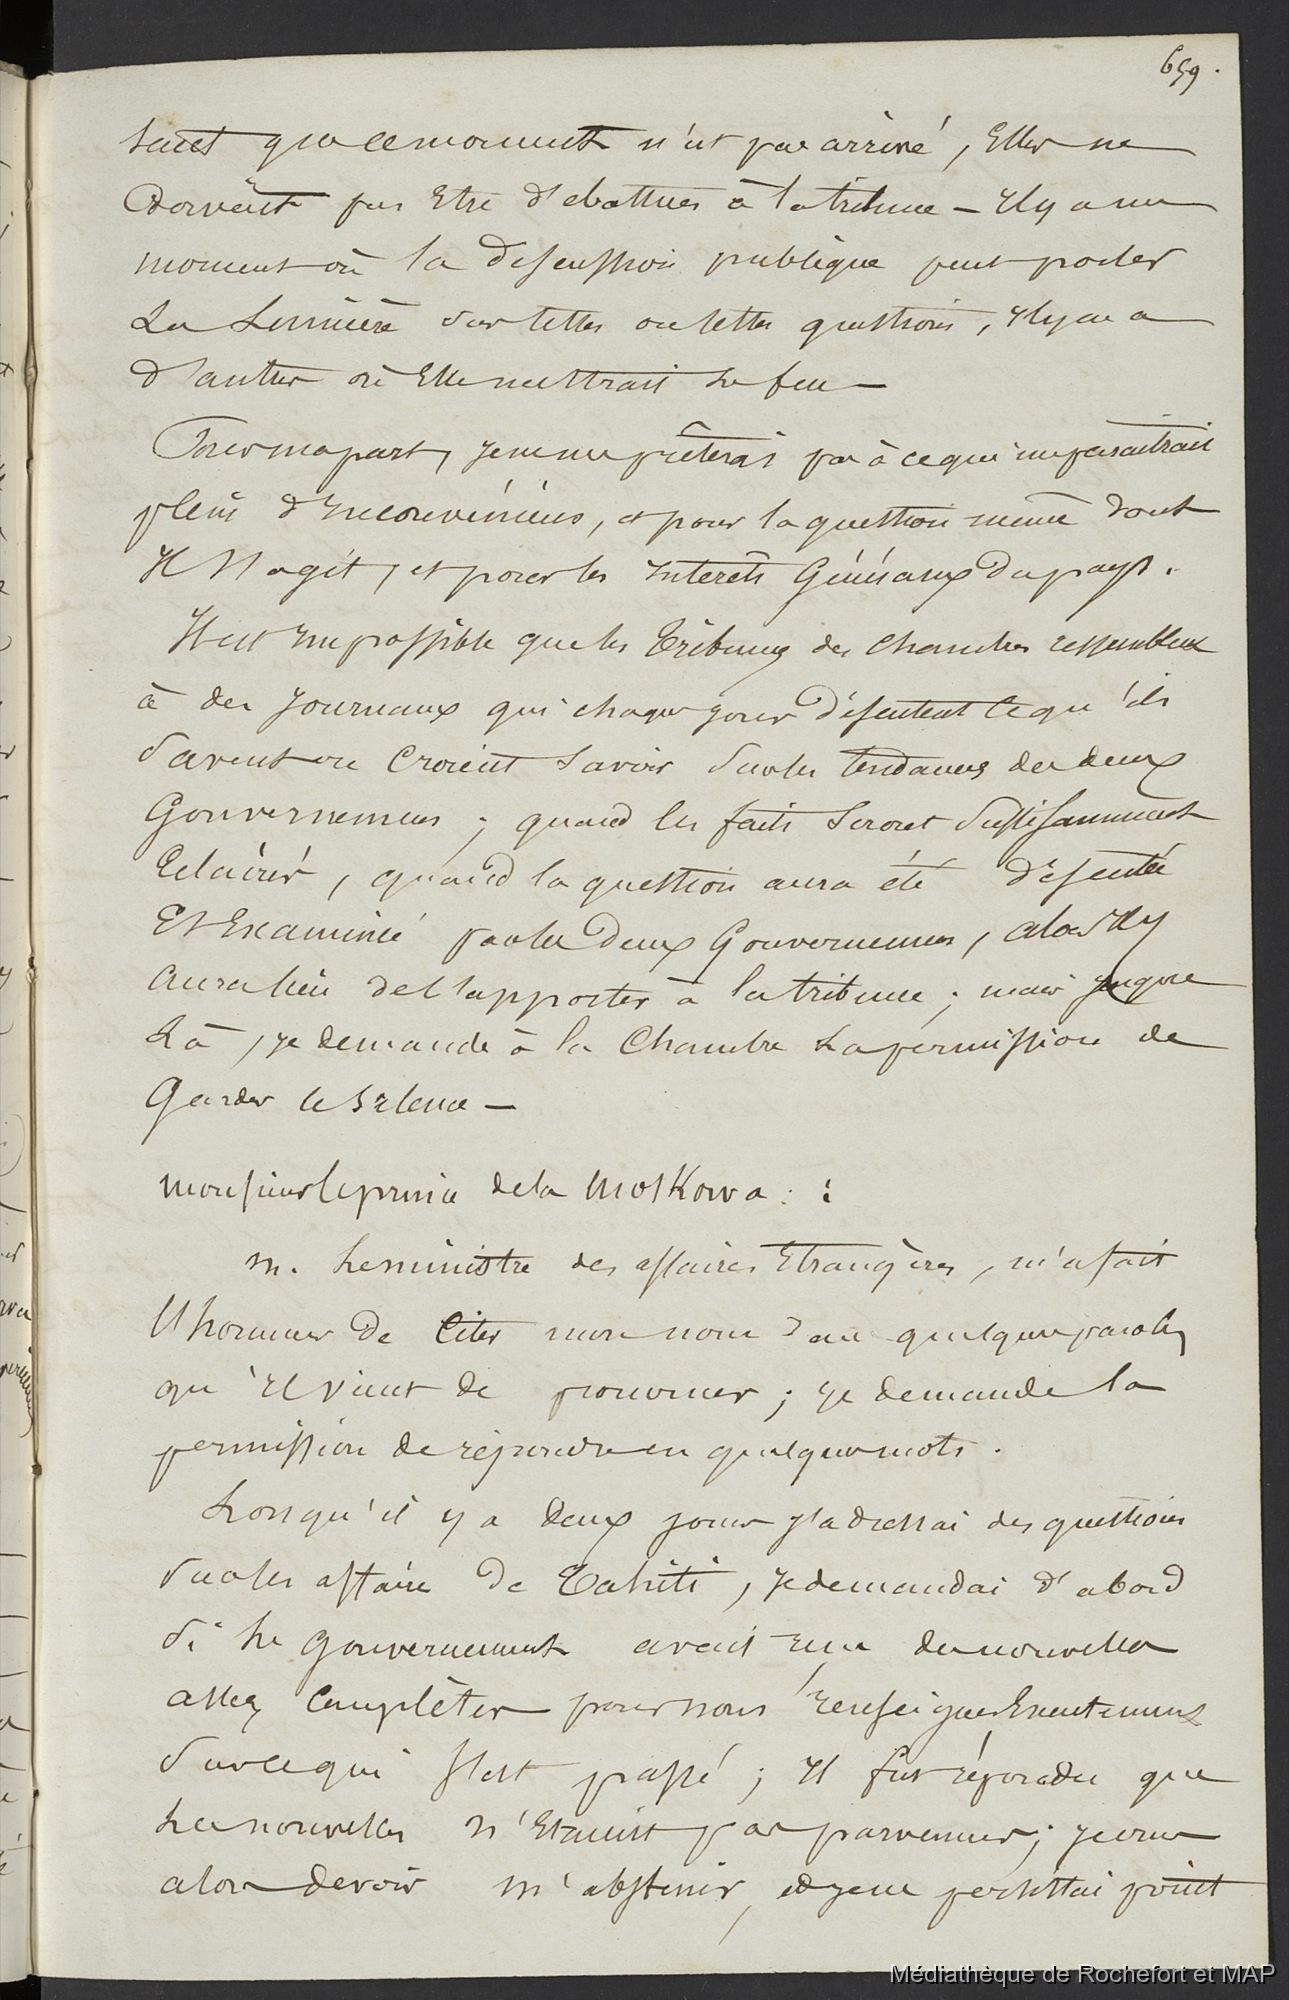 659.
tant que ce moment n'est pas arrivé, Elles ne
doivent pas Etre d'ebattues à la tribune — Il y a un
moment où la discussion publique peut porter
La Lumière sur telles ou telles questions, Il y en a
d'autres où Elle mettrait Le feu —
Pour ma part, je ne me prêterai pas à ce qui me paraitrait
plein d'Inconvéniens, et pour la question même dont
Il s'agit, et pour les Interêts Généraux du pays.
Il est Impossible que les Tribunes des Chambres ressemblent
à des Journaux qui chaque jour discutent ce qu'ils
savent ou Croient Savoir sur les tendances des deux
Gouvernemens ; quand les faits Seront suffisamment
Eclairés, quand la question aura été discutée
Et Examinée par les deux Gouvernemens, alors Il y
aura lieu de l'apporter à la tribune ; mais jusque
Là, je demande à la Chambre La permission de
Garder le Silence —
monsieur le prince de la Moskowa :
M. Le ministre des affaires Etrangères, m'a fait
l'honneur de Citer mon nom dans quelques paroles
qu'Il vient de prononcer ; je demande la
permission de répondre en quelques mots.
Lorsqu'il y a deux jours j'adressai des questions
sur les affaires de Tahiti, je demandai d'abord
si Le Gouvernement avait reçu des nouvelles
assez Complètes pour nous renseigner Exactement
sur ce qui s'est passé ; Il fut répondu que
Les nouvelles n'Etaient pas parvenues ; je crus
alors devoir m'abstenir, et je ne persistai point
Médiathèque de Rochefort et MAP